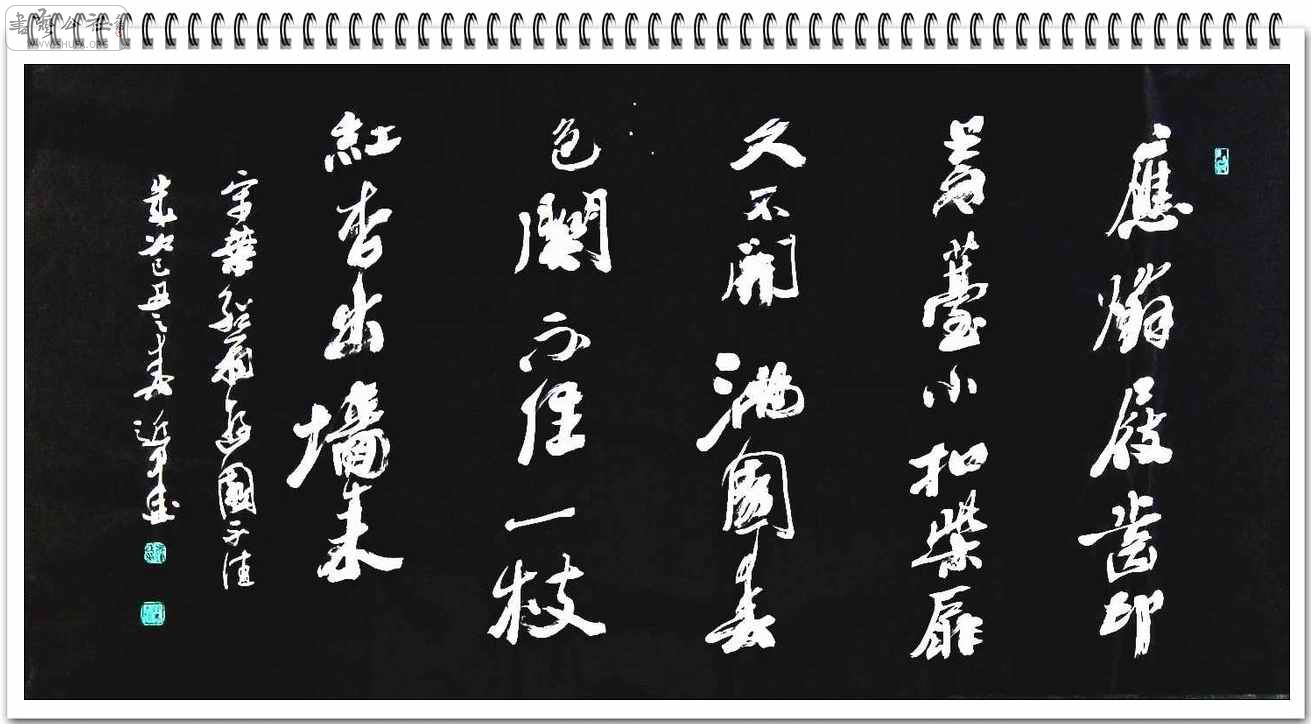 應憐屐齒印
蒼薹小扣柴扉
久不開滿園春
色關不住一枝
紅杏出墻来
宋葉紹翁遊園不值
歲次己丑之春
WWW.SHUFA.ORG